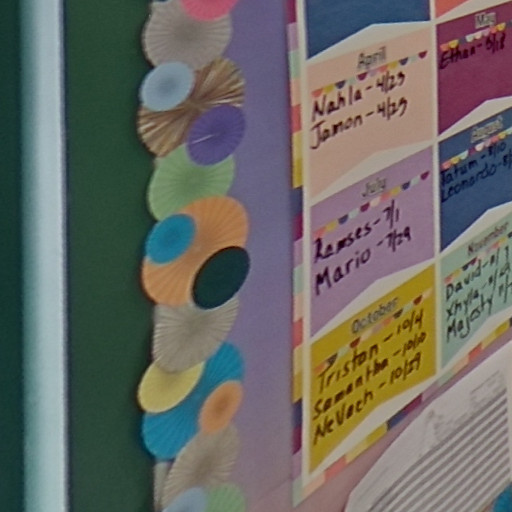 April
Nahla - 4/23
Jamon - 4/29
May
Ethan - 5/18
July
Ramses - 7/1
Mario - 7/29
August
Tatum - 8/10
Leonardo - 8/
October
Tristan - 10/4
Samantha - 10/10
NeVaeh - 10/29
November
David -
Khylla -
Majesty